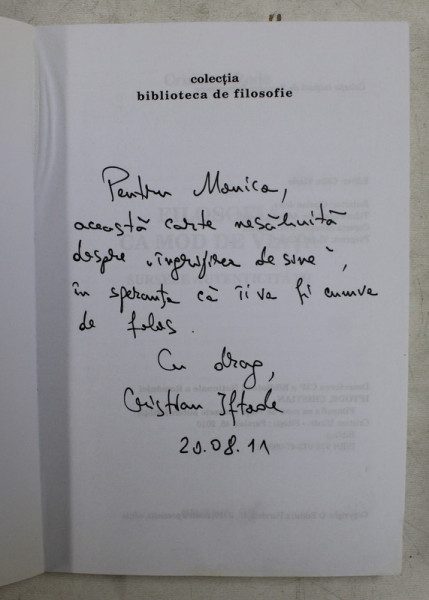 colecția
biblioteca de filosofie
Pentru Monica,
această carte nesăbuită
despre „îngrijirea de sine",
în speranța că îi va fi cumva
de folos.
Cu drag,
Cristian Iftode
20.08.11